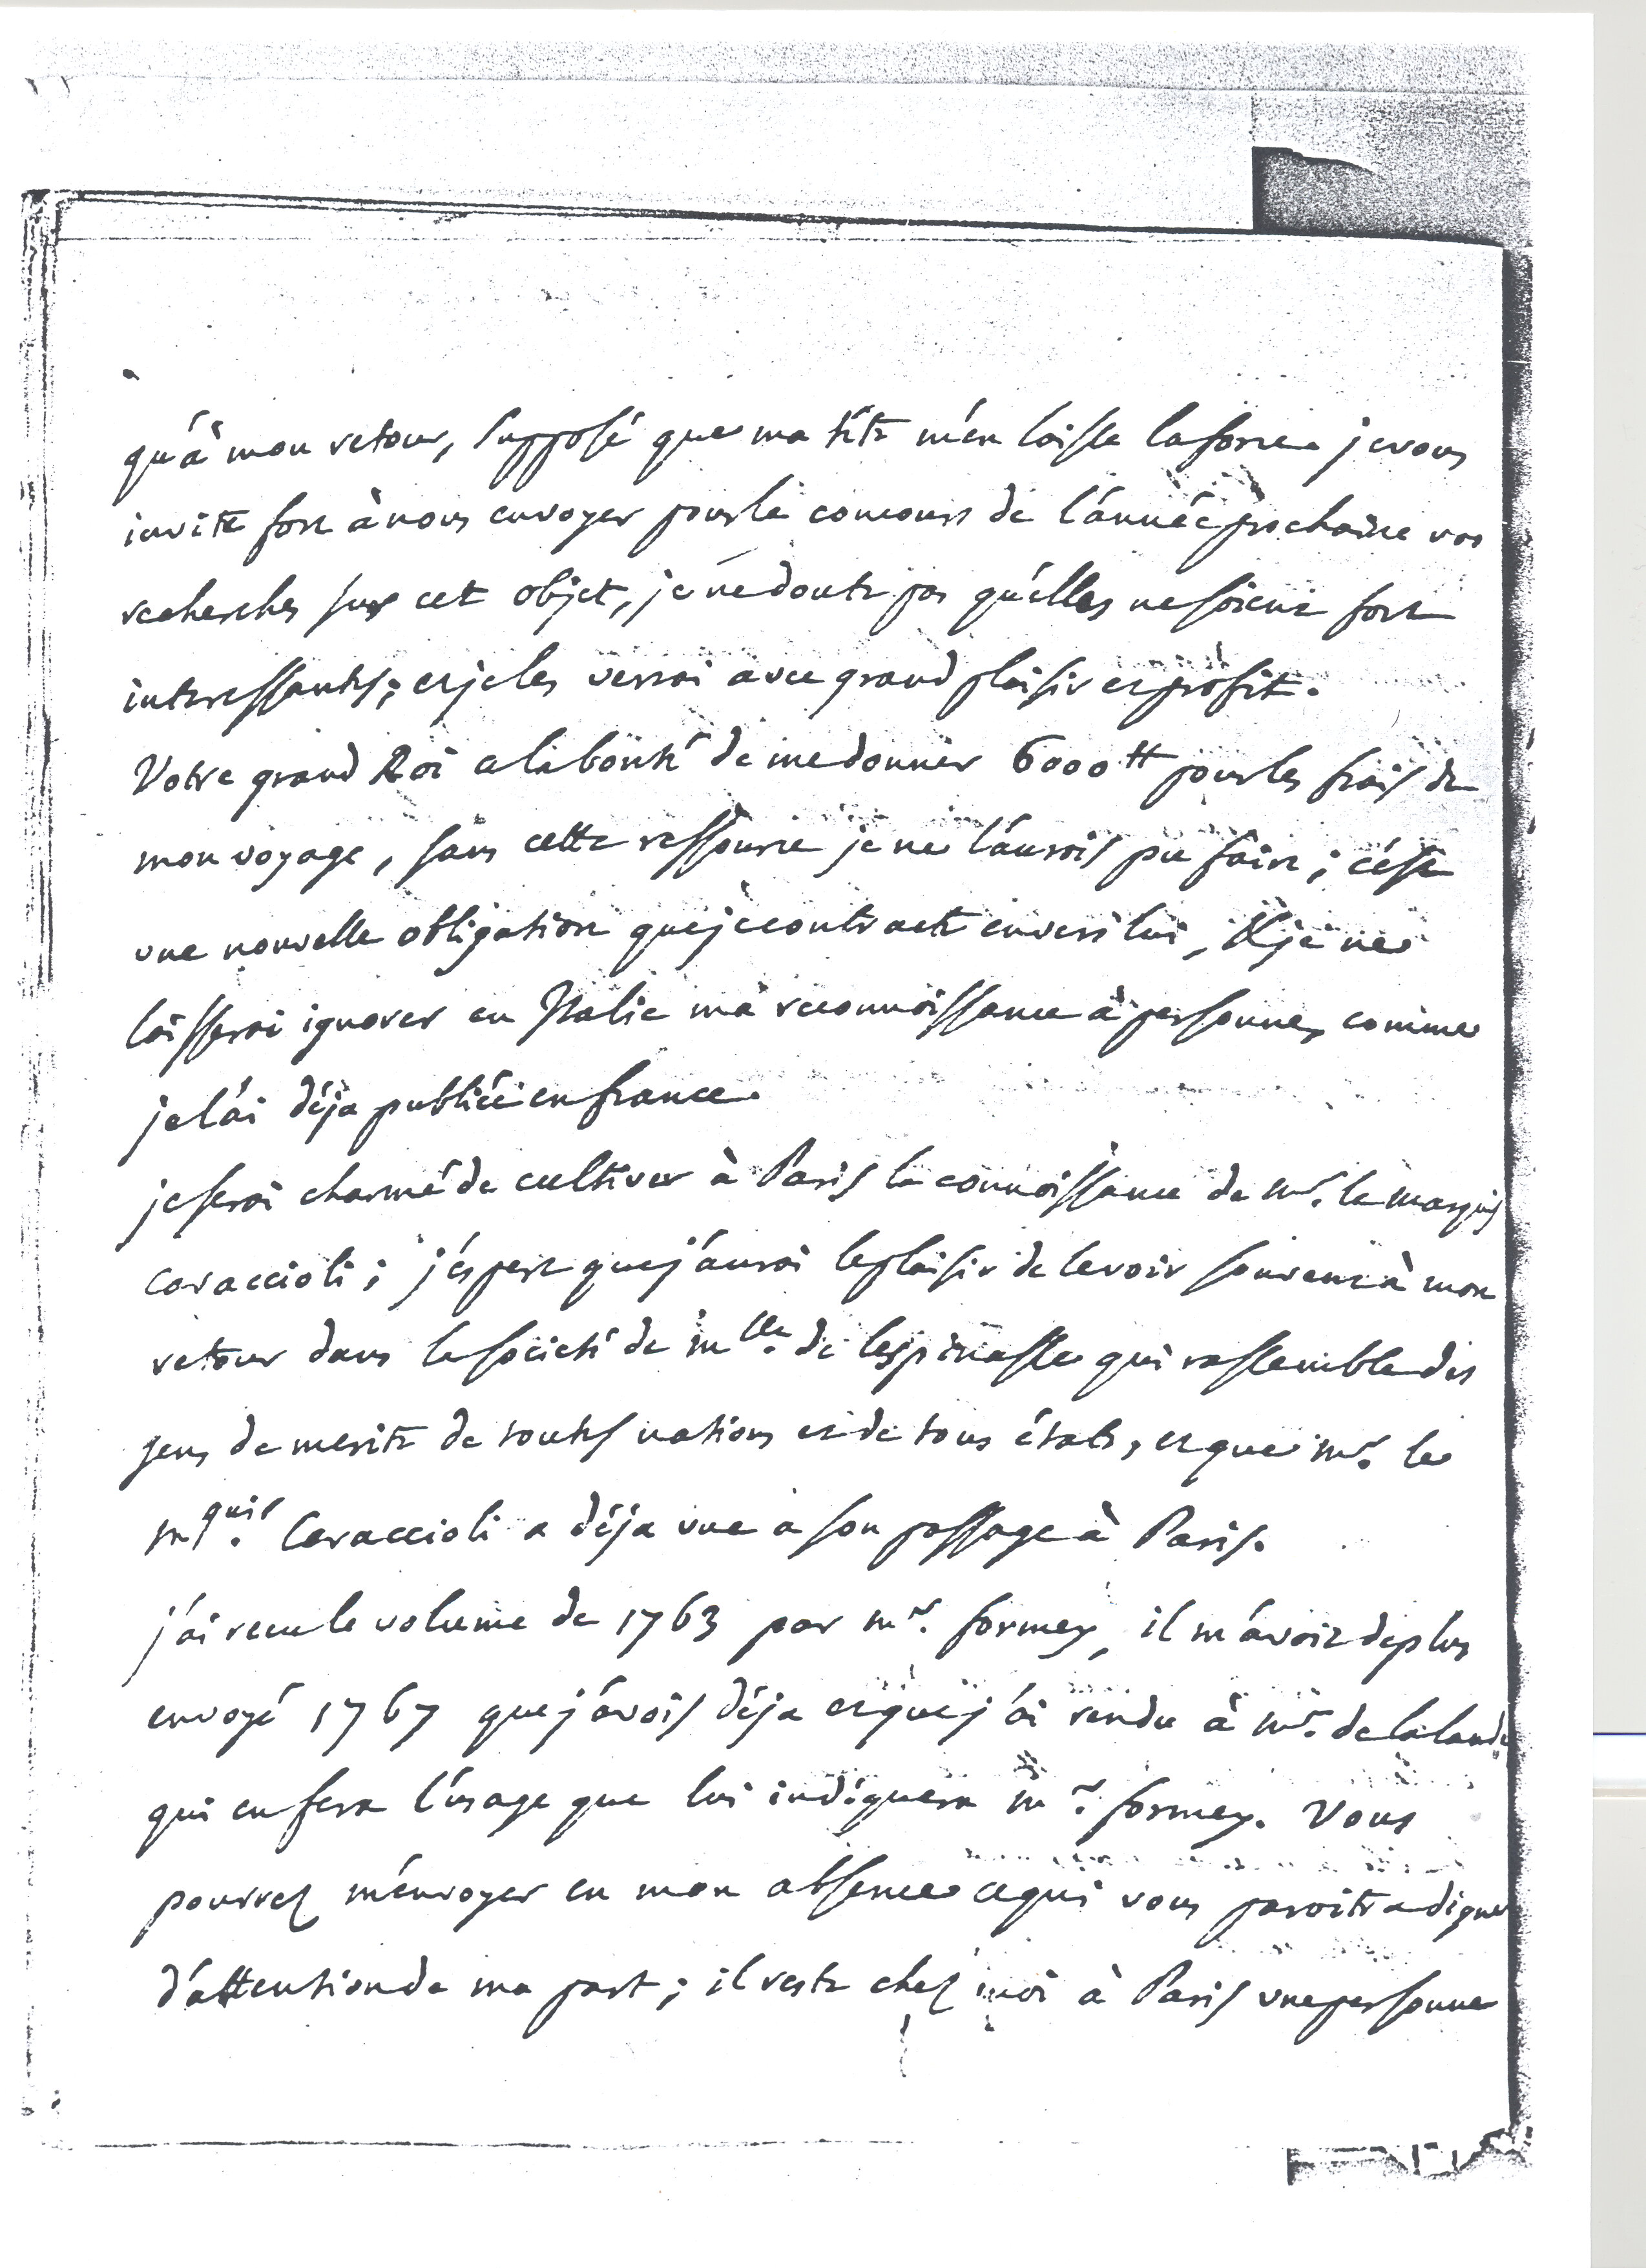 qu'à mon retour, supposé que ma tête m'en laisse la force. je vous
invite fort à nous envoyer pour le concours de l'année prochaine vos
recherches sur cet objet, je ne doute pas qu'elles ne soient fort
interessantes; et je les verrai avec grand plaisir et profit.
Votre grand Roi a la bonté de me donner 6000 ₶ pour les frais de
mon voyage, sans cette ressource je ne l'aurois pu faire; c'est
une nouvelle obligation que je contracte envers lui, & je ne
laisserai ignorer en Italie ma reconnoissance à personne, comme
je l'ai déja publiée en france.
je serai charmé de cultiver à Paris la connoissance de mr. le marquis
caraccioli; j'espere que j'aurai le plaisir de le voir souvent à mon
retour dans la société de mlle. de lespinasse qui rassemble des
gens de merite de toutes nations et de tous états, et que mr. le
mquis. Caraccioli a déja vue a son passage à Paris.
j'ai recu le volume de 1763 par mr. formey, il m'avoit de plus
envoyé 1767 que j'avois déja et que j'ai rendu à mr. de la lande
qui en fera l'usage que lui indiquera mr. formey. Vous
pourrez m'envoyer en mon absence ce qui vous paroitra digne
d'attention de ma part; il reste chez moi à Paris une personne